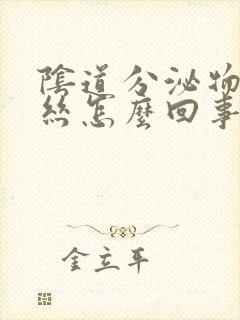 陰道分泌物
絲怎麼回事
金立平